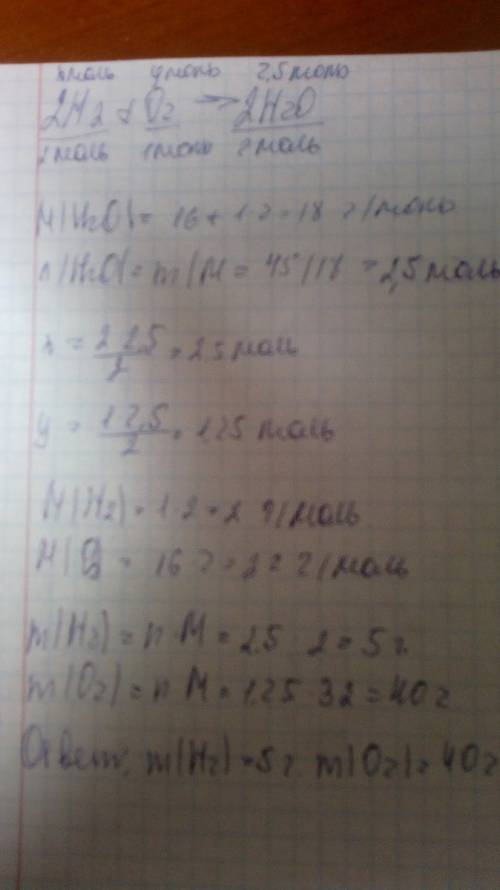 x моль y моль 2,5 моль
2H2 + O2 → 2H2O
2 моль 1 моль 2 моль
M(H2O) = 16 + 1·2 = 18 г/моль
n(H2O) = m/M = 45/18 = 2,5 моль
x = 2·2,5/2 = 2,5 моль
y = 1·2,5/2 = 1,25 моль
M(H2) = 1·2 = 2 г/моль
M(O2) = 16·2 = 32 г/моль
m(H2) = n·M = 2,5·2 = 5 г.
m(O2) = n·M = 1,25·32 = 40 г
Ответ: m(H2) = 5 г. m(O2) = 40 г